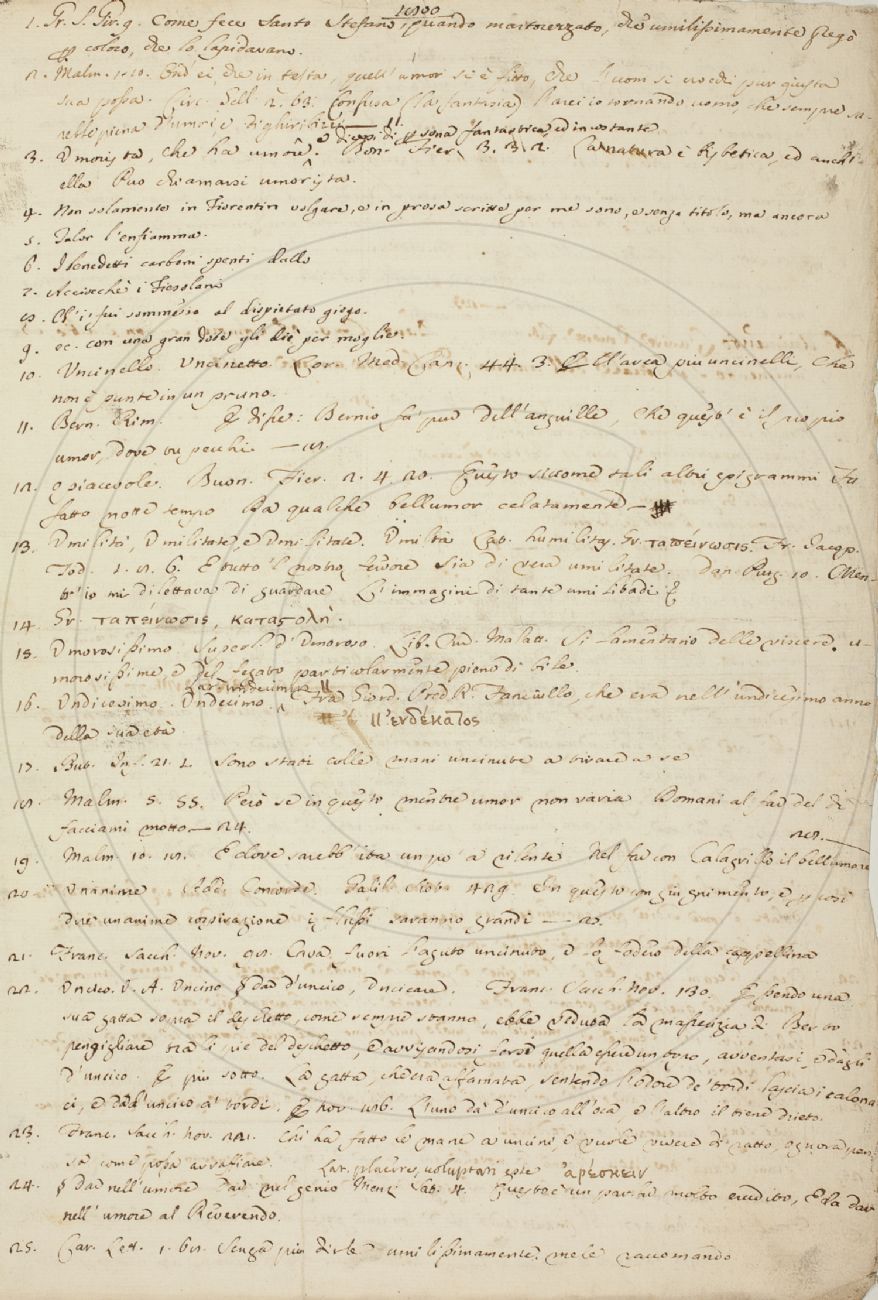 1. Fr. S. Gir. 9. Come fece Santo Stefano, quando martorezzato, che umilissimamente pregò
coloro, che lo lapidavano.
2. Malm. Ond' ei, che in testa, quell' umor si è fitto, che l' uom si crede pur giusta
sua possa. Circ. Gell. 2. 63. Confusa (la fantasia) sempre
piena d'umori e di ghiribizzi
e dicesi di persona fantastica ed incostante
3. Umorista, che ha umore. Buon. Fier. 3. 3. 2. La natura è bisbetica, ed anch'
ella può chiamarsi umorista.
4. Non solamente in Fiorentin volgare, e in prosa scritte per me sono, e senza titolo, ma ancora
5. Talor l'enfiamma.
6. I benedetti carboni spenti dallo
7. Accivechè i Fiesolani
8. Ch' i' fui sommesso al dispietato giogo.
9. ec. con una gran dote gli diè per moglie
10. Uncinello. Uncinetto. Lor. Med. Canz. 44. 3. Ell'avea più uncinelli, che
non è punte in un pruno.
11. Bern. Rim. E disse: Bernio, fa' pur dell'anguille, che quest' è il proprio
umor, dove tu pecchi
12. O piacevole. Buon. Fier. 2. 4. 20. Questo siccome tali altri epigrammi Fu
fatto notte tempo Da qualche bellumor celatamente
13. Umiltà, Umiltate, e Umilitate. Umiltà Lat. humilitas. Gr. ταπείνωσις. Fr. Iacop.
Tod. 1. 9. 6. E tutto 'l nostro fervore Sia di vera umilitate. Dan. Purg. 10. Men-
tr' io mi dilettava di guardare L' immagini di tante umilitadi
14. Gr. ταπείνωσις, καταστολή.
15. Umorosissimo. Superl. d' Umoroso. Lib. Cur. Malatt. Si lamentano delle viscere u-
morosissime, e del fegato particolarmente pieno di bile.
Lat. undecimus
16. Undicesimo. Undecimo. Fra Giord. Pred. R. Fanciullo, che era nell' undicesimo anno
ἑνδέκατος
della sua età
17. But. Inf. 21. 2. Sono stati colle mani uncinute a tirare a se
18. Malm. 5. 55. Però se in questo mentre umor non varia Domani al far del dì
facciami motto — 24.
19. Malm. 10. 18. E dove sarebb' ita un po' a rilente Nel far con Calagrillo il bellumore
20. Unanime Concorde. Galil. 429. In questo congiugnimento, e per così
dire unanime cospirazione i flussi saranno grandi — 20.
21. Franc. Sacch. Nov. 98. Cava fuori l'aguto uncinuto, e lo fodero della cappellina
22. Uncico. V. A. Uncino dar d'uncico, Uncicare. Franc. Sacch. Nov. 130. Essendo una
sua gatta sopra il deschetto, come sempre stanno, ebbe veduta la masserizia di
pengigliare tra li piè del deschetto, e avvisandosi forse quella esser un topo, avventasi, e dagli
d'uncico. E più sotto. La gatta, che era affamata, sentendo l'odore de' tordi lascia i
ci, e dà d'uncico a' tordi. E nov. 186. L' uno dà d'uncico all' oca e l'altro il tiene drieto.
23. Franc. Sacch. Nov. 221. Chi ha fatto le mane a uncini, e vuole vivere di ratto, ognora pen-
sa come possa arraffiare. Lat. placere, voluptati esse ἀρέσκειν
24. Dar nell' umore Dar nel genio Menz. Sat. 4. Questo è un parlar molto erudito, E dà dar
nell' umore al Reverendo.
25. Car. Lett. 1. 68. Senza più dirle umilissimamente mele raccomando